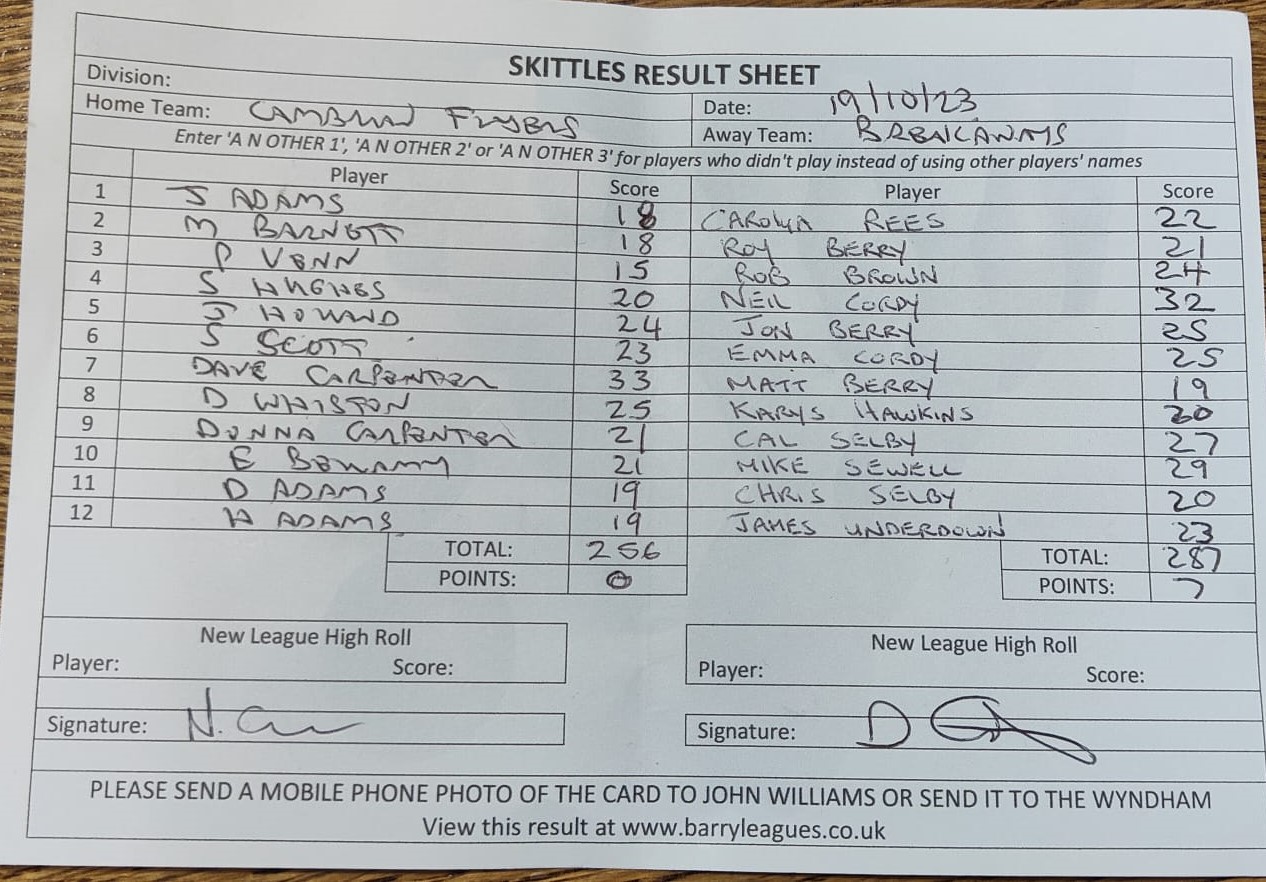 SKITTLES RESULT SHEET
Division:
Home Team: CAMBRIAN FLYERS Date: 19/10/23
Away Team: BREAKAWAYS
Enter 'A N OTHER 1', 'A N OTHER 2' or 'A N OTHER 3' for players who didn't play instead of using other players' names
Player Score Player Score
1 J ADAMS 18 CAROLYN REES 22
2 M BARNETT 18 ROY BERRY 21
3 P VENN 15 ROB BROWN 24
4 S HUGHES 20 NEIL CORDY 32
5 J HOWARD 24 JON BERRY 25
6 S SCOTT 23 EMMA CORDY 25
7 DAVE CARPENTER 33 MATT BERRY 19
8 D WHISTON 25 KARYS HAWKINS 20
9 DONNA CARPENTER 21 CAL SELBY 27
10 E 21 MIKE SEWELL 29
11 D ADAMS 19 CHRIS SELBY 20
12 H ADAMS 19 JAMES UNDERDOWN 23
TOTAL: 256 TOTAL: 287
POINTS: 0 POINTS: 7
New League High Roll New League High Roll
Player: Score: Player: Score:
Signature: N. Signature: D
PLEASE SEND A MOBILE PHONE PHOTO OF THE CARD TO JOHN WILLIAMS OR SEND IT TO THE WYNDHAM
View this result at www.barryleagues.co.uk